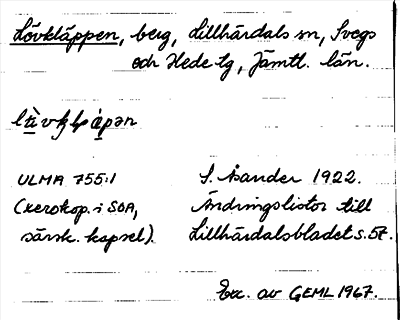 Lövkläppen, berg, Lillhärdals sn, Svegs
och Hede tg, Jämtl. län.
ULMA 755:1
S. Åsander 1922.
(xerokop. i SOA,
Ändringslistor till
särsk. kapsel).
Lillhärdalsbladet s. 57.
Exc. av GEML 1967.